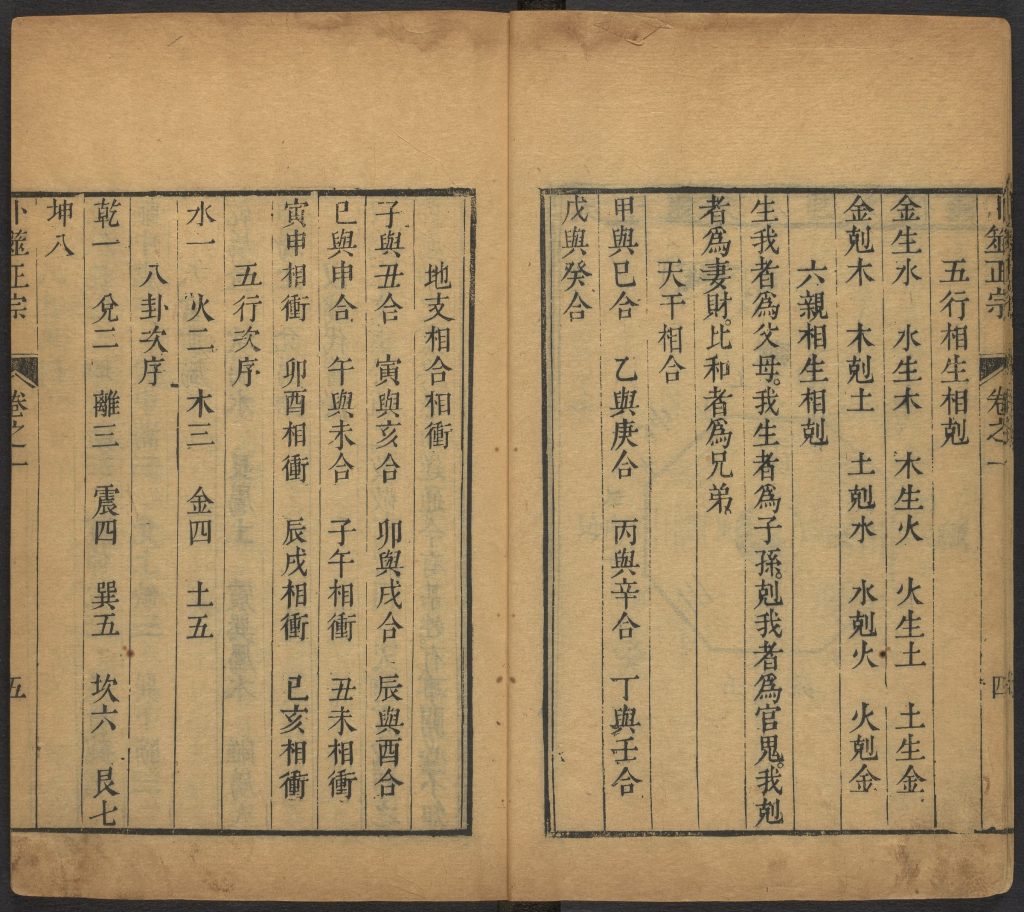 卜筮正宗 卷之一 四
五行相生相剋
金生水 水生木 木生火 火生土 土生金
金剋木 木剋土 土剋水 水剋火 火剋金
六親相生相剋
生我者爲父母。我生者爲子孫。剋我者爲官鬼。我剋
者爲妻財。比和者爲兄弟。
天干相合
甲與巳合 乙與庚合 丙與辛合 丁與壬合
戊與癸合
地支相合相衝
子與丑合 寅與亥合 卯與戌合 辰與酉合
巳與申合 午與未合 子午相衝 丑未相衝
寅申相衝 卯酉相衝 辰戌相衝 巳亥相衝
五行次序
水一 火二 木三 金四 土五
八卦次序
乾一 兌二 離三 震四 巽五 坎六 艮七
坤八
卜筮正宗 卷之一 五